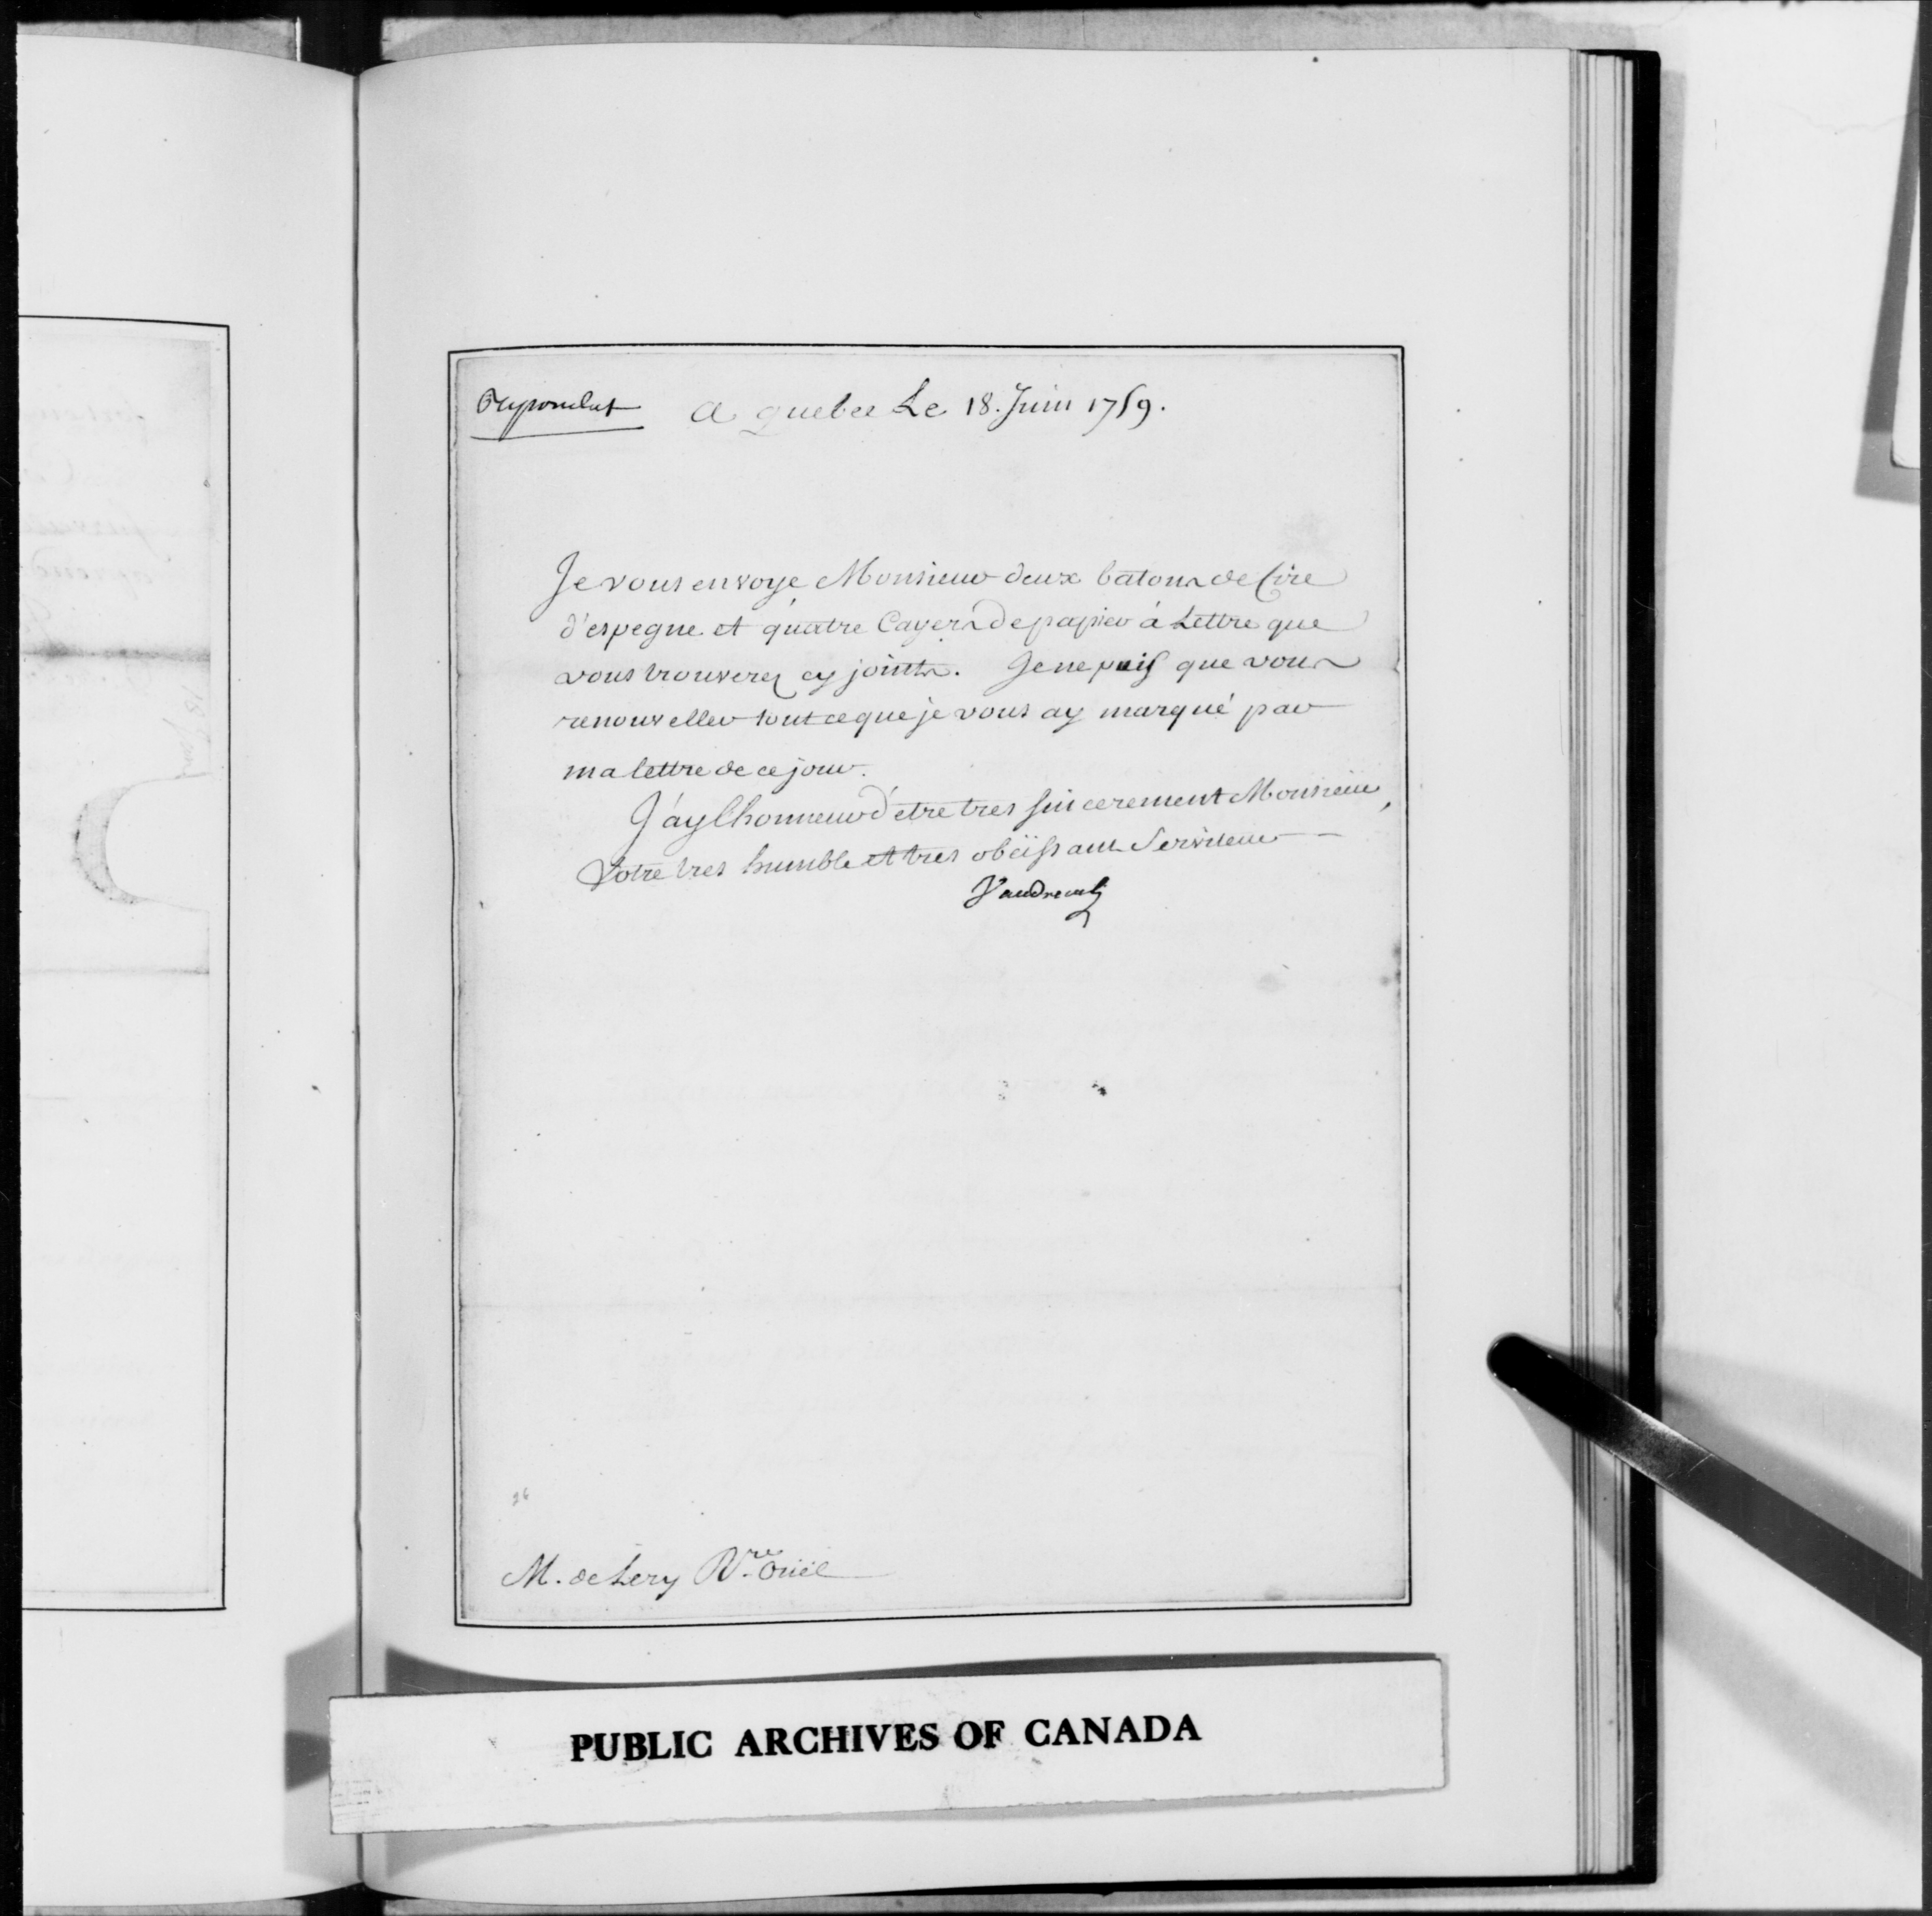 a quebec Le 18. Juin 1759.
Je vous envoye Monsieur deux batons de Cire
d'espegne et quatre Cayers de papier à Lettre que
vous trouverez cy joints. Je ne puis que vous
renouveller tout ce que je vous ay marqué par
ma lettre de ce jour.
J'ay lhonneur d'etre tres sincerement Monsieur,
Votre tres humble et tres obeïssant Serviteur
Vaudreuil
M. de Lery Rre. Ouël
PUBLIC ARCHIVES OF CANADA